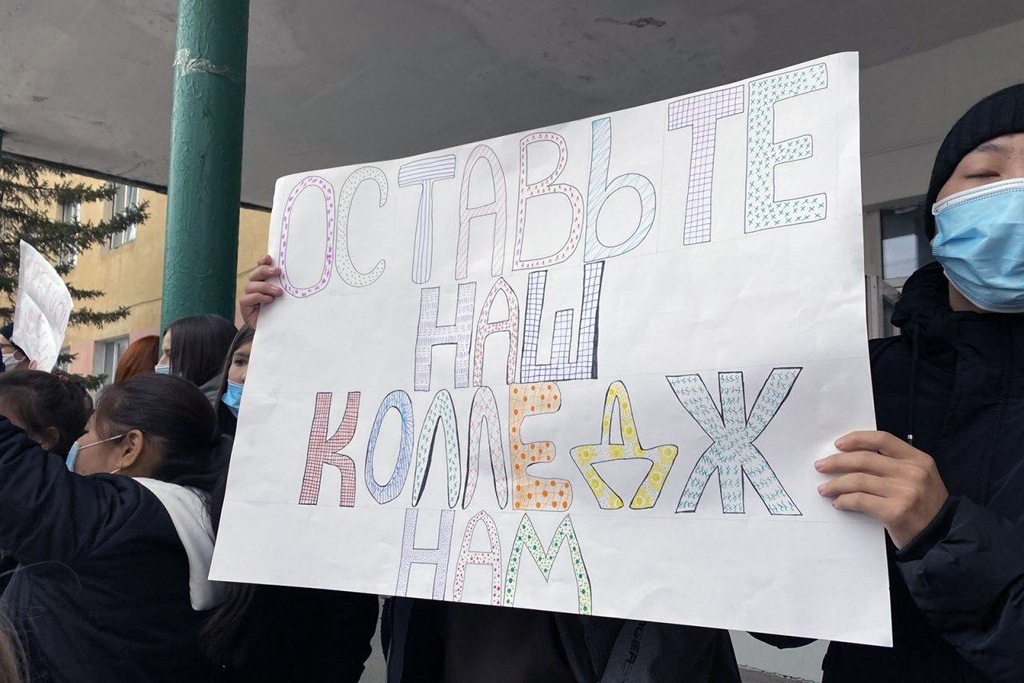 ОСТАВЬТЕ
НАШ
КОЛЛЕДЖ
НАМ